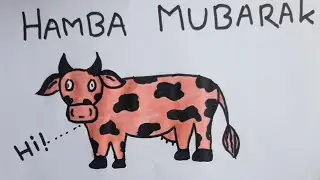 HAMBA MUBARAK
Hi!